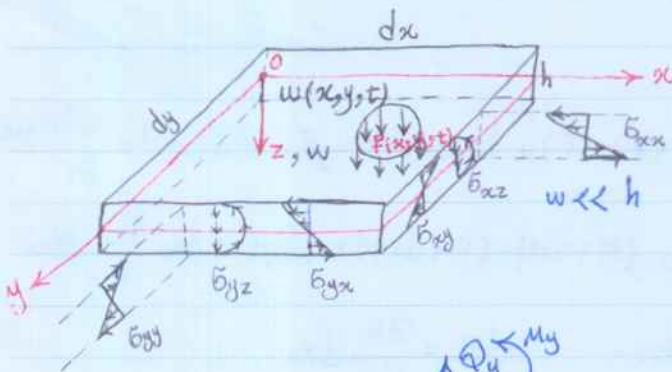 dx
o
x
h
w(x,y,t)
dy
z, w
F(x,y,t)
σxx
σxz
w << h
σxy
y
σyz
σyx
σyy
Qy
My